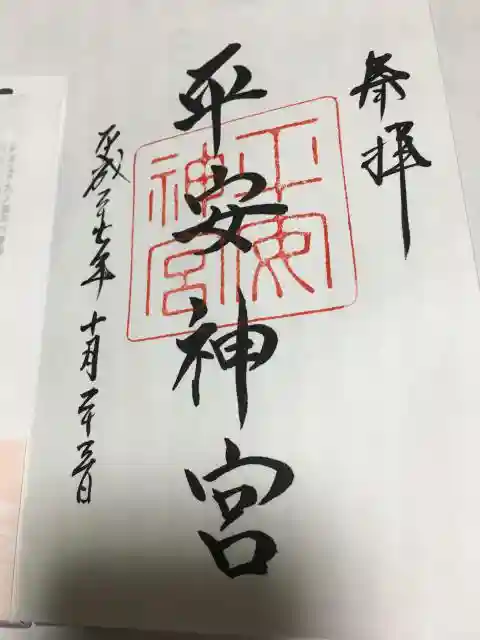 奉拝
平安神宮
平安
神宮
平成二十七年十月二十三日